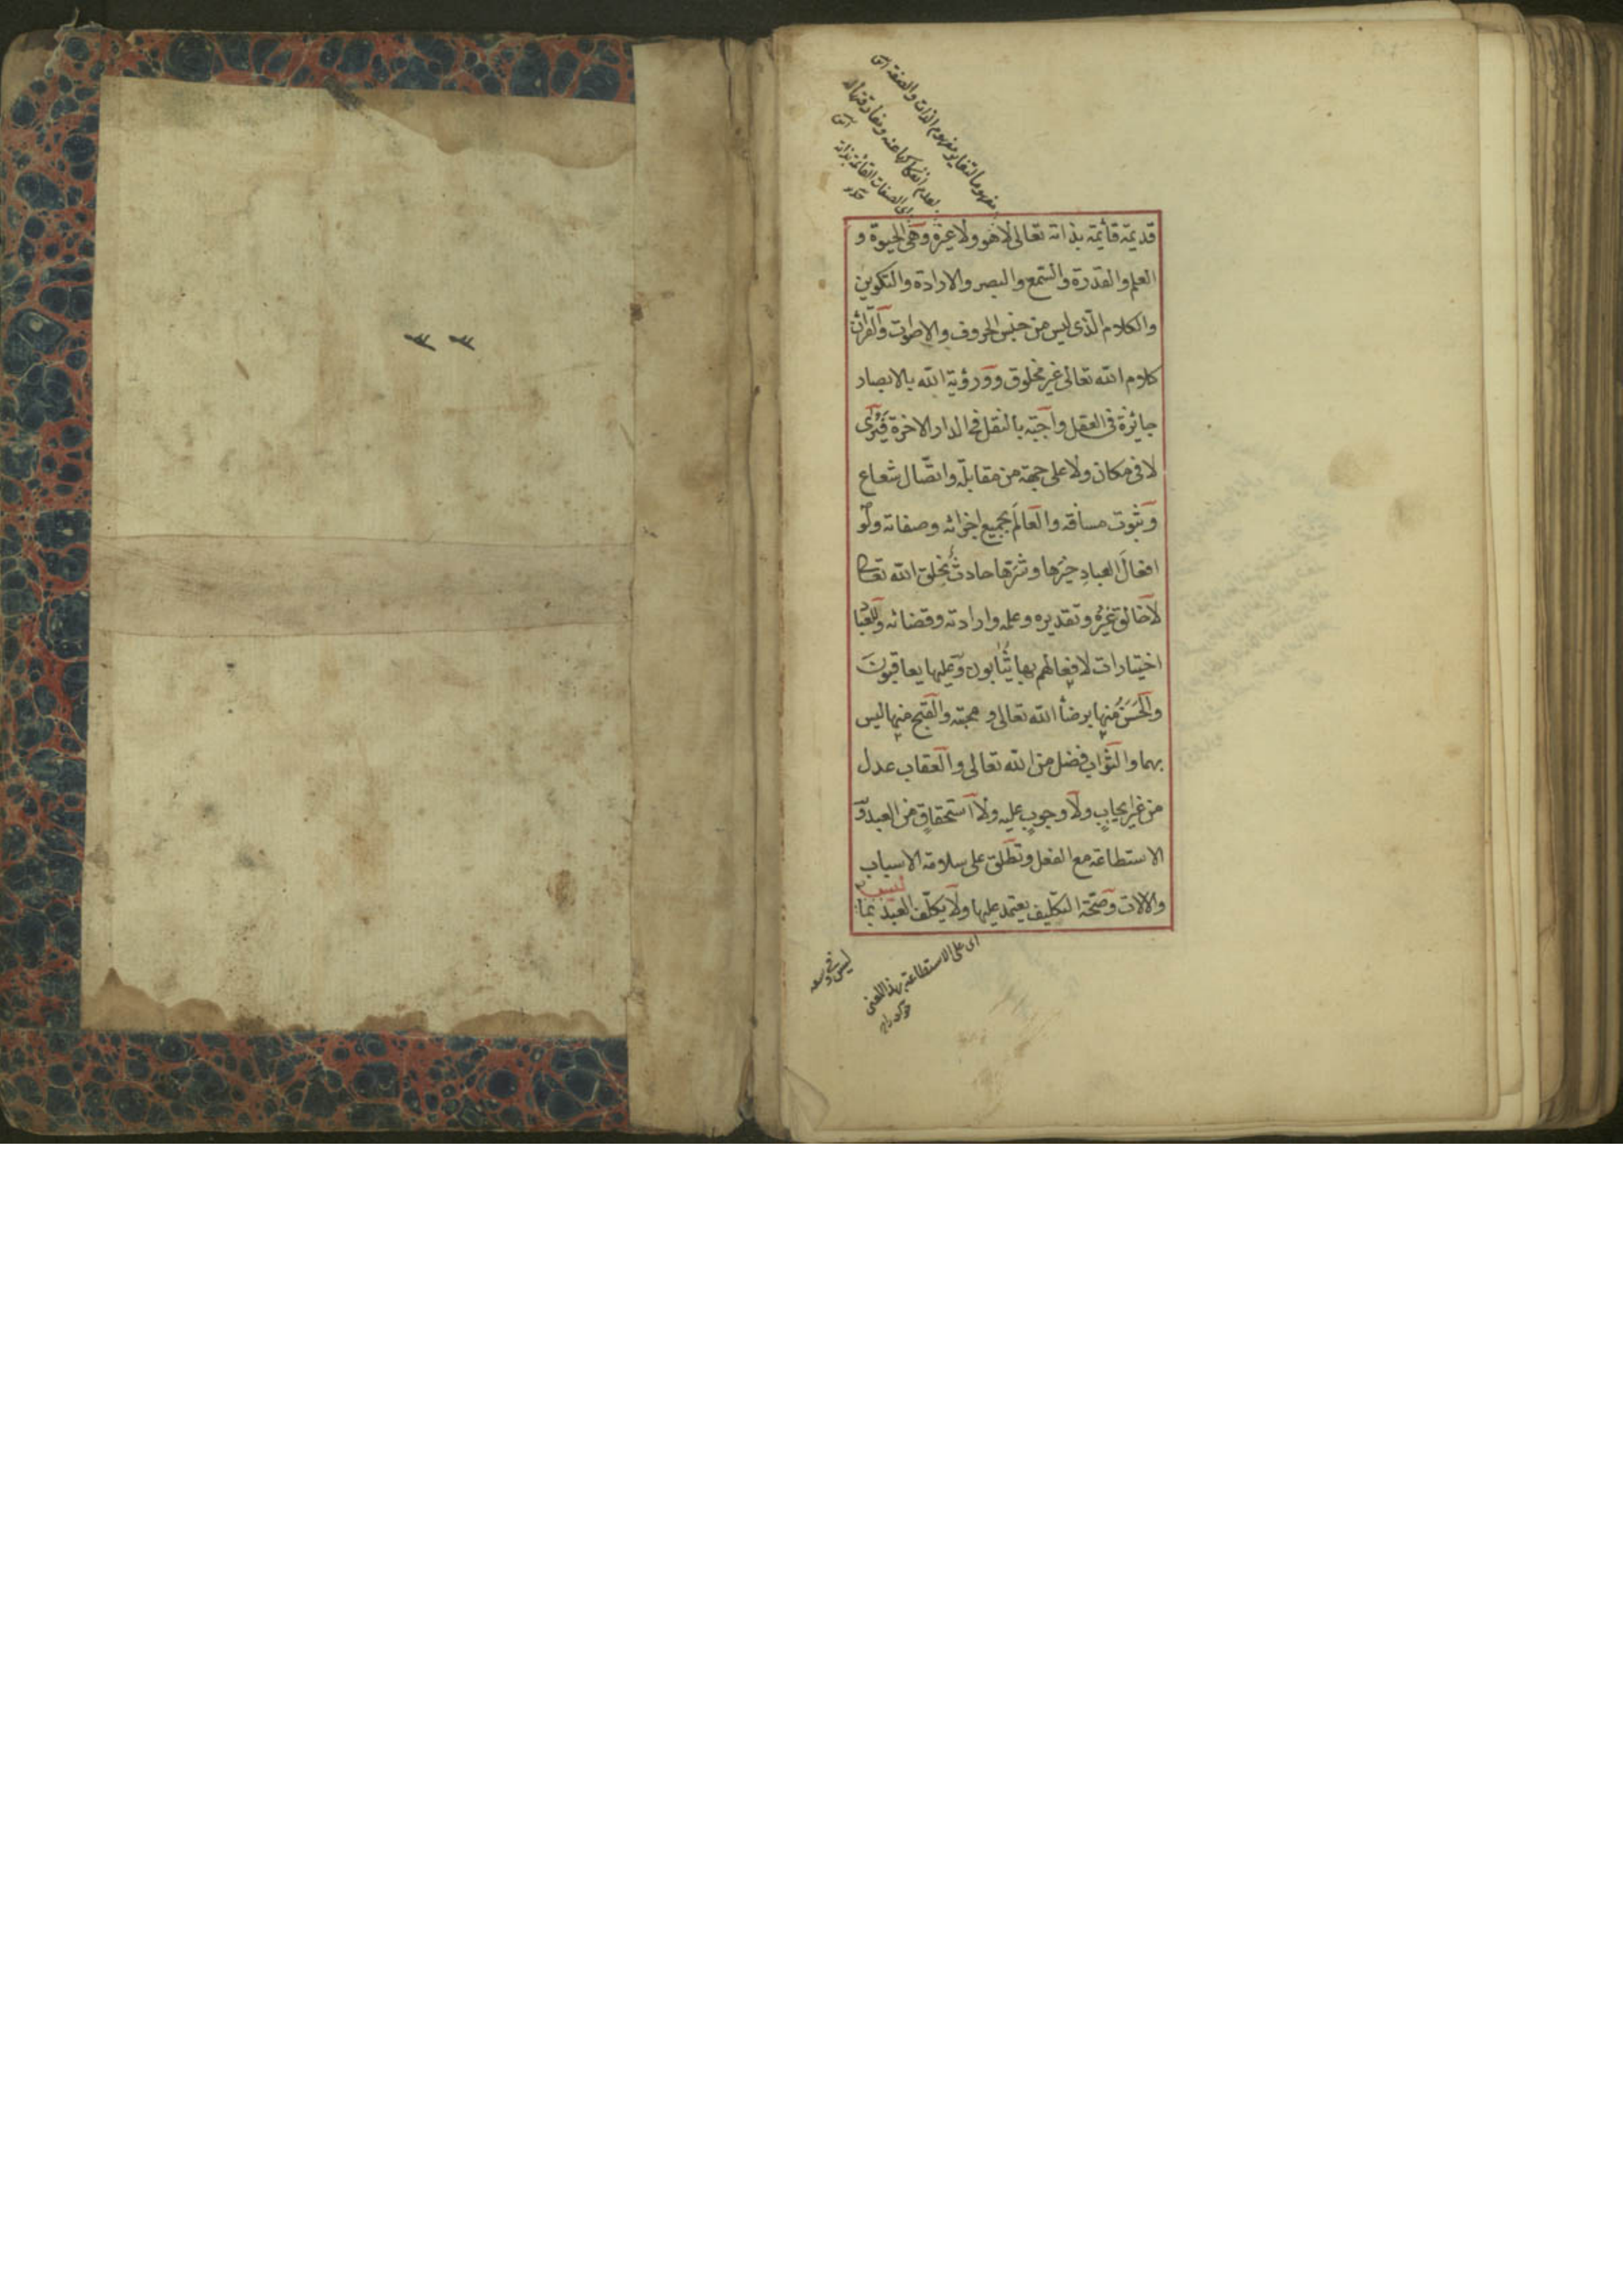 مفهوما لتغاير مفهوم الذات والصفة
لعدم انفكاكها عنه ومفارقتها له
اى الصفات القائمة بذاته
قديمة قائمة بذاته تعالى لا هو ولا غيره وهى الحيوة و
العلم والقدرة والسمع والبصر والارادة والتكوين
والكلام الذى ليس من جنس الحروف والاصوات والقرآن
كلام الله تعالى غير مخلوق وورؤية الله بالابصار
جايزة فى العقل واجبة بالنقل فى الدار الاخرة فيرى
لا فى مكان ولا على جهة من مقابلة واتصال شعاع
وثبوت مسافة والعالَم بجميع اجزائه وصفاته ولو
افعالَ العبادِ خيرها وشرّها حادثٌ بخلق الله تعالى
لا خالق غيرُه وتقديره وعلمه وارادته وقضائه وللعبا
اختيارات لافعالهم بها يُثابون وعليها يعاقبونَ
والحَسَنُ منها برضأ الله تعالى و محبته والقبح منها ليس
بهما والثواب فضل من الله تعالى والعقاب عدل
من غير ايجابٍ ولا وجوبٍ عليه ولا استحقاقٍ من العبد و
الاستطاعة مع الفعل وتطلق على سلامة الاسباب
والالات وصحّة التكليف يعتمد عليها ولا يكلّف العبد بما
ليس فى وسعه
اى على الاستطاعة بهذا المعنى